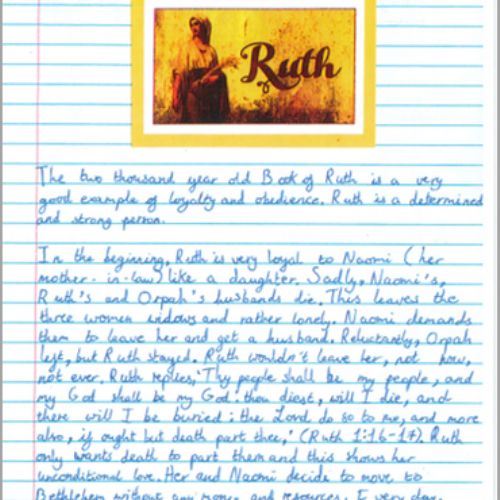 Ruth
The two thousand year old Book of Ruth is a very
good example of loyalty and obedience. Ruth is a determined
and strong person.
In the beginning, Ruth is very loyal to Naomi (her
mother-in-law) like a daughter. Sadly, Naomi's,
Ruth's and Orpah's husbands die. This leaves the
three women widows and rather lonely. Naomi demands
them to leave her and get a husband. Reluctantly, Orpah
left, but Ruth stayed. Ruth wouldn't leave her, not now,
not ever. Ruth replies, 'Thy people shall be my people, and
my God shall be my God: thou diest, will I die, and
there will I be buried: the Lord do so to me, and more
also, if ought but death part thee,' (Ruth 1:16-17) Ruth
only wants death to part them and this shows her
unconditional love. Her and Naomi decide to move to
Bethlehem without any money and resources. Every day,